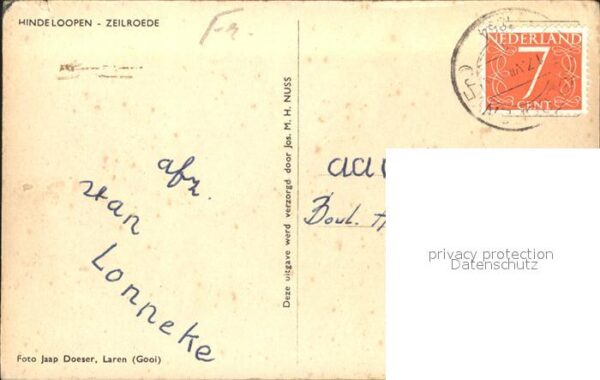 HINDELOOPEN - ZEILROEDE
Fr.
NEDERLAND
7
CENT
afz.
Stan
Lonneke
Deze uitgave werd verzorgd door Jos. M. H. NUSS
aa
Boul.
privacy protection
Datenschutz
Foto Jaap Doeser, Laren (Gooi)